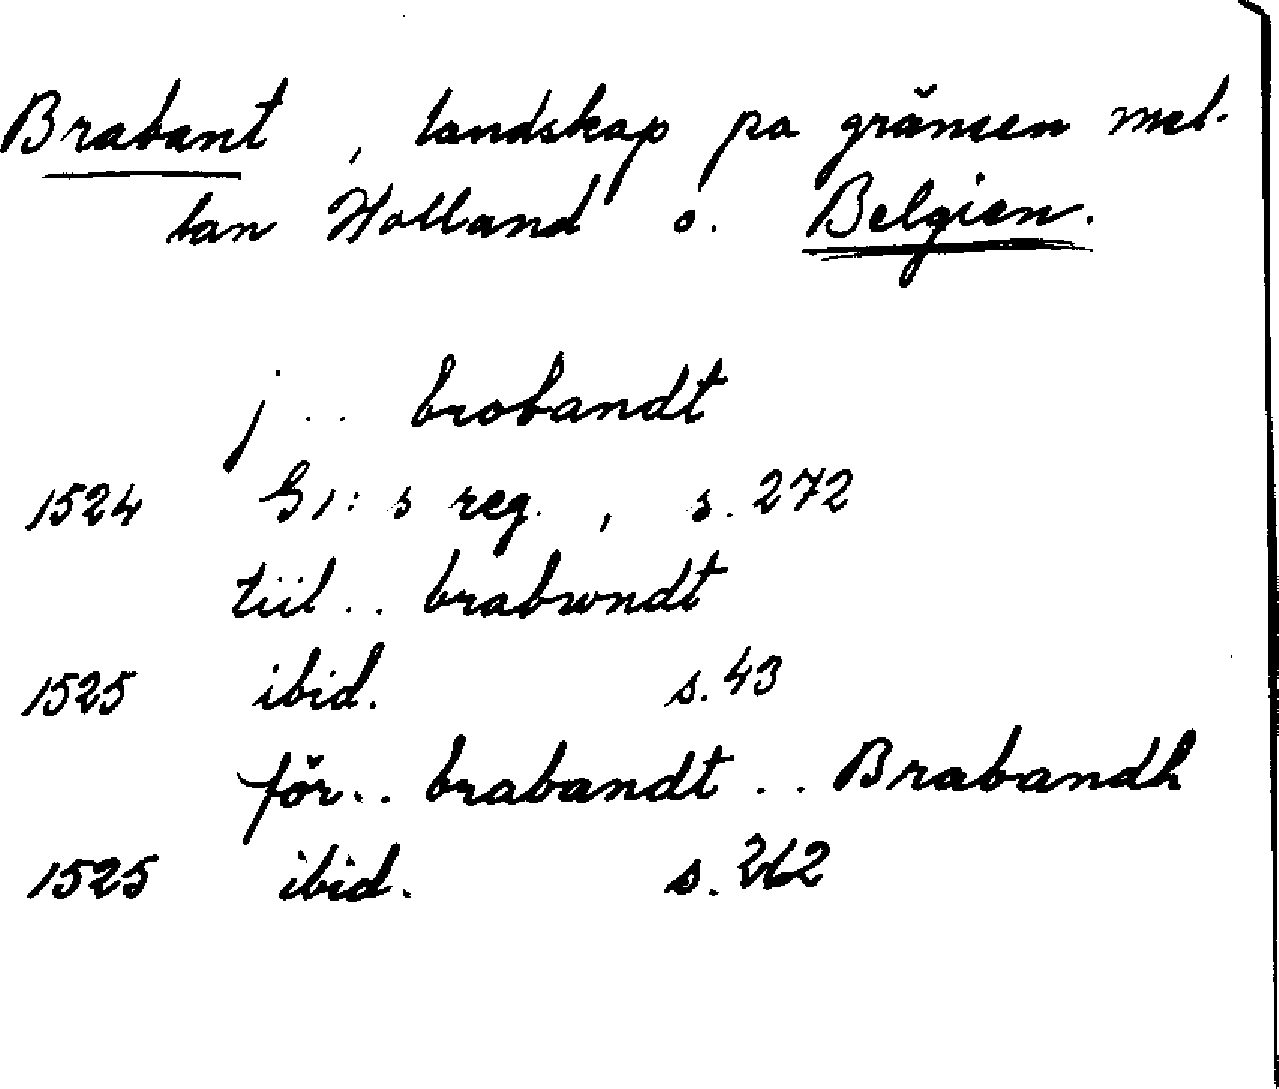 Brabant, landskap på gränsen mel-
lan Holland o. Belgien.
j .. brobandt
1524 G1:s reg., s. 272
tiil .. brabandt
1525 ibid. s. 43
för .. brabandt .. Brabandh
1525 ibid. s. 262